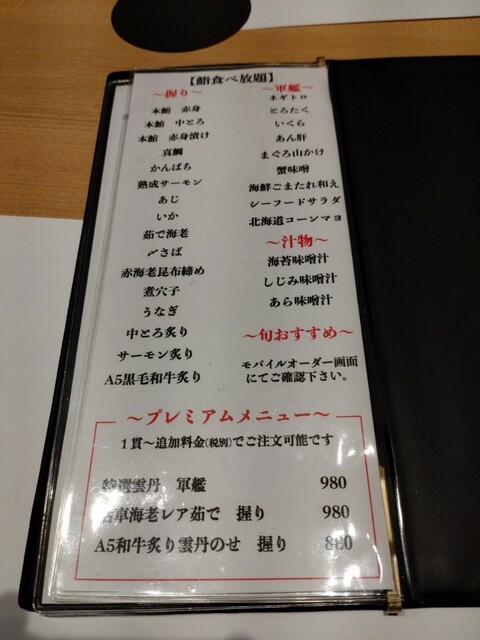 【鮨食べ放題】
～握り～
本鮪 赤身
本鮪 中とろ
本鮪 赤身漬け
真鯛
かんぱち
熟成サーモン
あじ
いか
茹で海老
〆さば
赤海老昆布締め
煮穴子
うなぎ
中とろ炙り
サーモン炙り
A5黒毛和牛炙り
～軍艦～
ネギトロ
とろたく
いくら
あん肝
まぐろ山かけ
蟹味噌
海鮮ごまたれ和え
シーフードサラダ
北海道コーンマヨ
～汁物～
海苔味噌汁
しじみ味噌汁
あら味噌汁
～旬おすすめ～
モバイルオーダー画面
にてご確認下さい。
～プレミアムメニュー～
1貫～追加料金(税別)でご注文可能です
特選雲丹 軍艦 980
車海老レア茹で 握り 980
A5和牛炙り雲丹のせ 握り 880